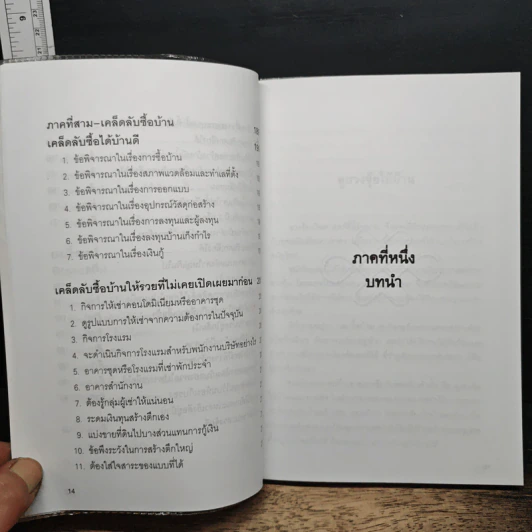 ภาคที่สาม–เคล็ดลับซื้อบ้าน
เคล็ดลับซื้อได้บ้านดี
1. ข้อพิจารณาในเรื่องการซื้อบ้าน
2. ข้อพิจารณาในเรื่องสภาพแวดล้อมและทำเลที่ตั้ง
3. ข้อพิจารณาในเรื่องการออกแบบ
4. ข้อพิจารณาในเรื่องอุปกรณ์วัสดุก่อสร้าง
5. ข้อพิจารณาในเรื่องการลงทุนและผู้ลงทุน
6. ข้อพิจารณาในเรื่องลงทุนบ้านเก็งกำไร
7. ข้อพิจารณาในเรื่องเงินกู้
เคล็ดลับซื้อบ้านให้รวยที่ไม่เคยเปิดเผยมาก่อน
1. กิจการให้เช่าคอนโดมิเนียมหรืออาคารชุด
2. ดูรูปแบบการให้เช่าจากความต้องการในปัจจุบัน
3. กิจการโรงแรม
4. จะดำเนินกิจการโรงแรมสำหรับพนักงานบริษัทอย่างไร
5. อาคารชุดหรือโรงแรมที่เช่าพักประจำ
6. อาคารสำนักงาน
7. ต้องรู้กลุ่มผู้เช่าให้แน่นอน
8. ระดมเงินทุนสร้างตึกเอง
9. แบ่งขายที่ดินไปบางส่วนแทนการกู้เงิน
10. ข้อพึงระวังในการสร้างตึกใหญ่
11. ต้องใส่ใจสาระของแบบที่ได้
14
ภาคที่หนึ่ง
บทนำ